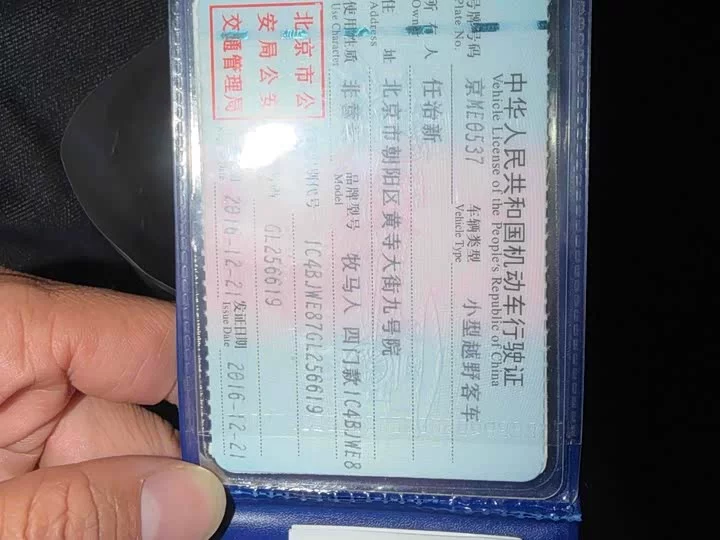 中华人民共和国机动车行驶证
Vehicle License of the People's Republic of China
号牌号码 京ME0537 车辆类型 小型越野客车
Plate No. Vehicle Type
所有人 任治新
Owner
住址 北京市朝阳区黄寺大街九号院
Address
使用性质 非营 品牌型号 牧马人 四门款1C4BJWE8
Use Character Model
北京市公 代号 1C4BJWE87GL256619
安局公安 GL256619
交通管理局 2016-12-21 发证日期 2016-12-21
Issue Date